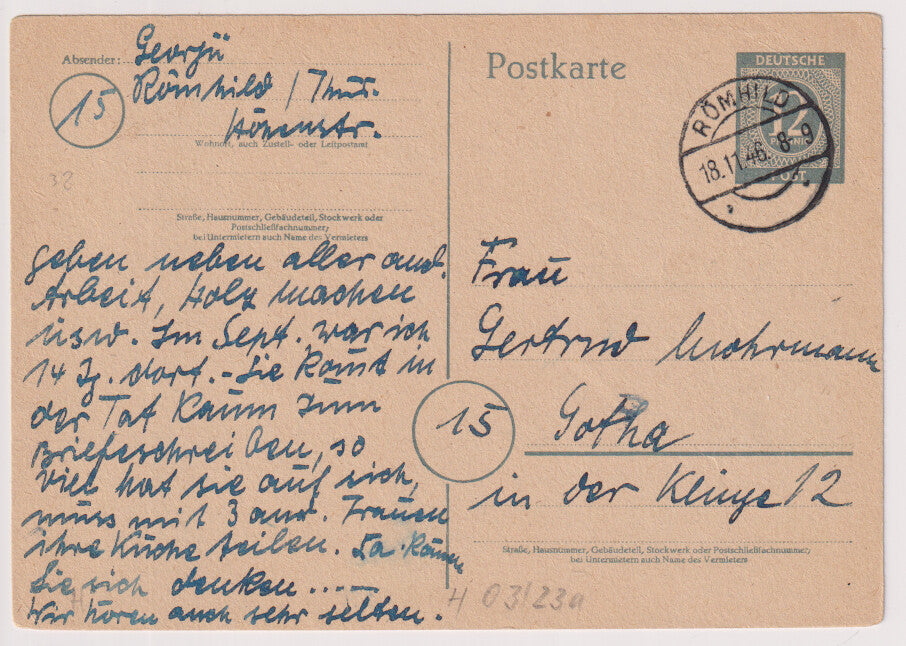 Absender: Georgii
15
Römhild / Thür.
Höhenstr.
Wohnort, auch Zustell- oder Leitpostamt
32
Straße, Hausnummer, Gebäudeteil, Stockwerk oder
Postschließfachnummer;
bei Untermietern auch Name des Vermieters
geben neben aller and.
Arbeit, Holz machen
usw. Im Sept. war ich
14 Tg. dort. - Sie kommt in
der Tat kaum zum
Briefeschreiben, so
viel hat sie auf sich,
muss mit 3 and. Frauen
ihre Küche teilen. Da können
Sie sich denken.....
Wir hören auch sehr selten.
Postkarte
DEUTSCHE
12
PFENNIG
POST
RÖMHILD
18.11.46. 8-9
Frau
Gertrud Mohrmann
15
Gotha
in der Klinge 12
Straße, Hausnummer, Gebäudeteil, Stockwerk oder Postschließfachnummer;
bei Untermietern auch Name des Vermieters
H 03/23a